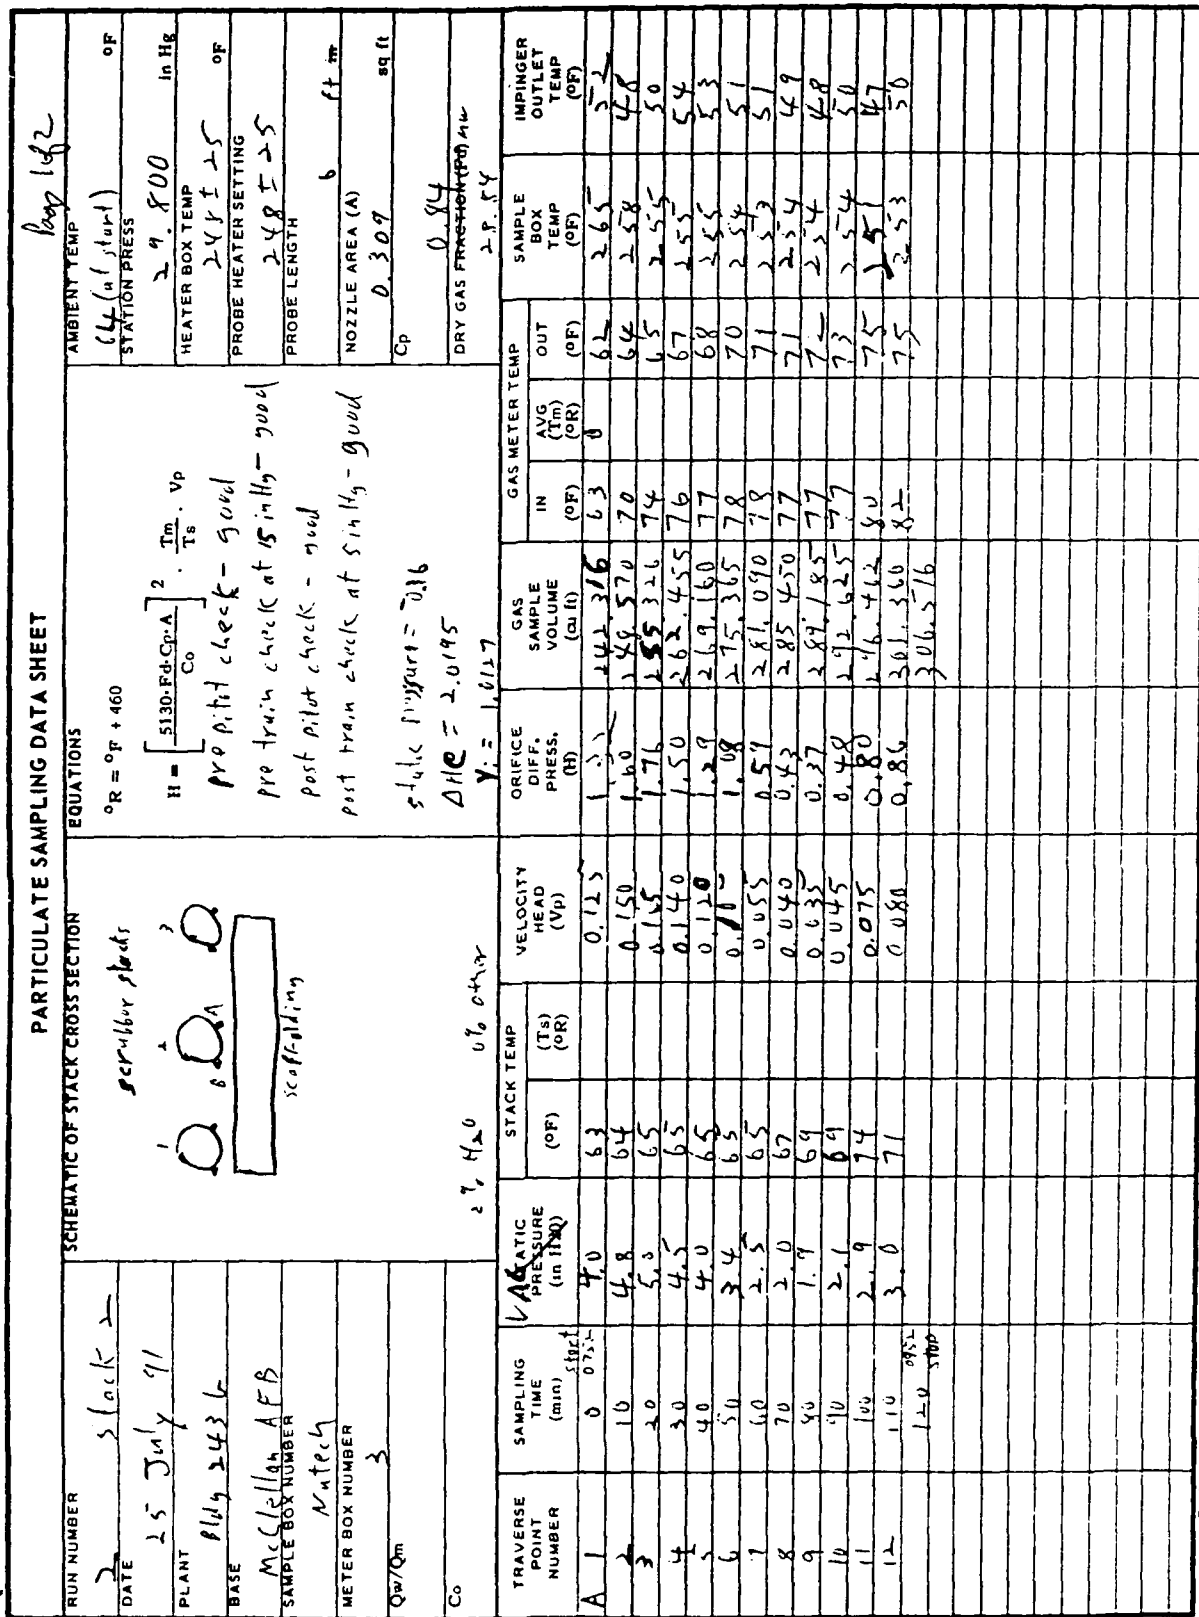 Page 1 of 2
PARTICULATE SAMPLING DATA SHEET
RUN NUMBER
2 stack 2
DATE
25 July 91
PLANT
Bldg 243 6
BASE
McClellan AFB
SAMPLE BOX NUMBER
Nutech
METER BOX NUMBER
3
Qw/Qm
Co
SCHEMATIC OF STACK CROSS SECTION
scrubber stacks
1 2 3
B A
scaffolding
2% H2O 0% other
EQUATIONS
oR = oF + 460
H = [5130·Fd·Cp·A / Co]2 · Tm/Ts · Vp
pre pitot check - good
pre train check at 15 inHg - good
post pitot check - good
post train check at 5 inHg - good
static pressure = -0.16
ΔH@ = 2.0195
Y = 1.0127
AMBIENT TEMP
64 (at start) oF
STATION PRESS
29.800 in Hg
HEATER BOX TEMP
248 ± 25 oF
PROBE HEATER SETTING
248 ± 25
PROBE LENGTH
6 ft
NOZZLE AREA (A)
0.309 sq ft
Cp
0.84
DRY GAS FRACTION (Fd) mw
28.84
TRAVERSE POINT NUMBER
SAMPLING TIME (min)
VAC STATIC PRESSURE (in H2O)
STACK TEMP
(oF)
(Ts) (oR)
VELOCITY HEAD (Vp)
ORIFICE DIFF. PRESS. (H)
GAS SAMPLE VOLUME (cu ft)
GAS METER TEMP
IN (oF)
AVG (Tm) (oR)
OUT (oF)
SAMPLE BOX TEMP (oF)
IMPINGER OUTLET TEMP (oF)
A 1 0 start 0752 4.0 63 0.125 242.316 63 62 265 52
2 10 4.8 64 0.150 1.60 248.570 70 64 258 48
3 20 5.0 65 0.165 1.76 255.326 74 65 255 50
4 30 4.5 65 0.140 1.50 262.455 76 67 255 54
5 40 4.0 65 0.120 1.29 269.160 77 68 255 53
6 50 3.4 65 1.08 275.365 78 70 254 51
7 60 2.5 65 0.055 0.59 281.090 78 71 253 51
8 70 2.0 67 0.040 0.43 285.450 77 71 254 49
9 80 1.9 69 0.035 0.37 289.185 77 72 254 48
10 90 2.1 69 0.045 0.48 292.625 77 73 254 50
11 100 2.9 74 0.075 0.80 296.462 80 75 251 47
12 110 3.0 71 0.080 0.86 301.360 82 75 253 50
120 0952 stop 306.576